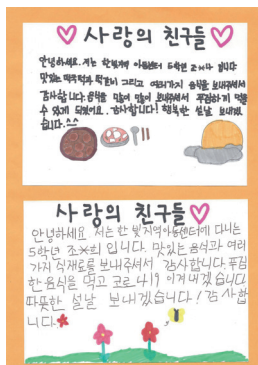 사랑의 친구들
안녕하세요. 저는 한빛지역 아동센터 5학년 조※나 입니다
맛있는 떡국떡과 떡갈비 그리고 여러가지 음식을 보내주셔서
감사합니다. 음식을 많이 많이 보내주셔서 푸짐하게 먹을
수 있게 되었어요. 감사합니다! 행복한 설날 보내겠
습니다.^^
사랑의 친구들
안녕하세요 저는 한빛지역아동센터에 다니는
5학년 조※희 입니다. 맛있는 음식과 여러
가지 식재료를 보내주셔서 감사합니다. 푸짐
한 음식을 먹고 코로나19 이겨내겠습니다
따뜻한 설날 보내겠습니다! 감사합
니다.